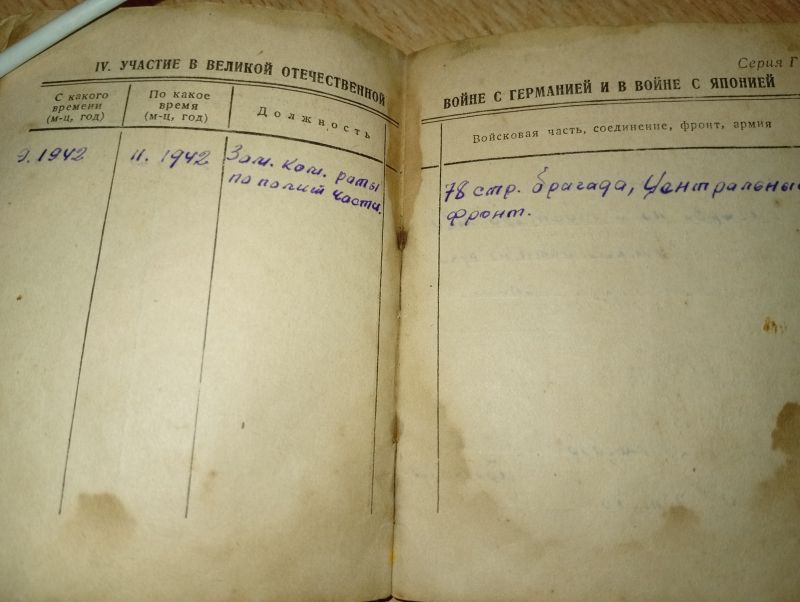 Серия Г
IV. УЧАСТИЕ В ВЕЛИКОЙ ОТЕЧЕСТВЕННОЙ
ВОЙНЕ С ГЕРМАНИЕЙ И В ВОЙНЕ С ЯПОНИЕЙ
С какого
времени
(м-ц, год)
По какое
время
(м-ц, год)
Должность
Войсковая часть, соединение, фронт, армия
9. 1942
11. 1942
Зам. ком. роты
по полит части.
78 стр. бригада, Центральный
фронт.